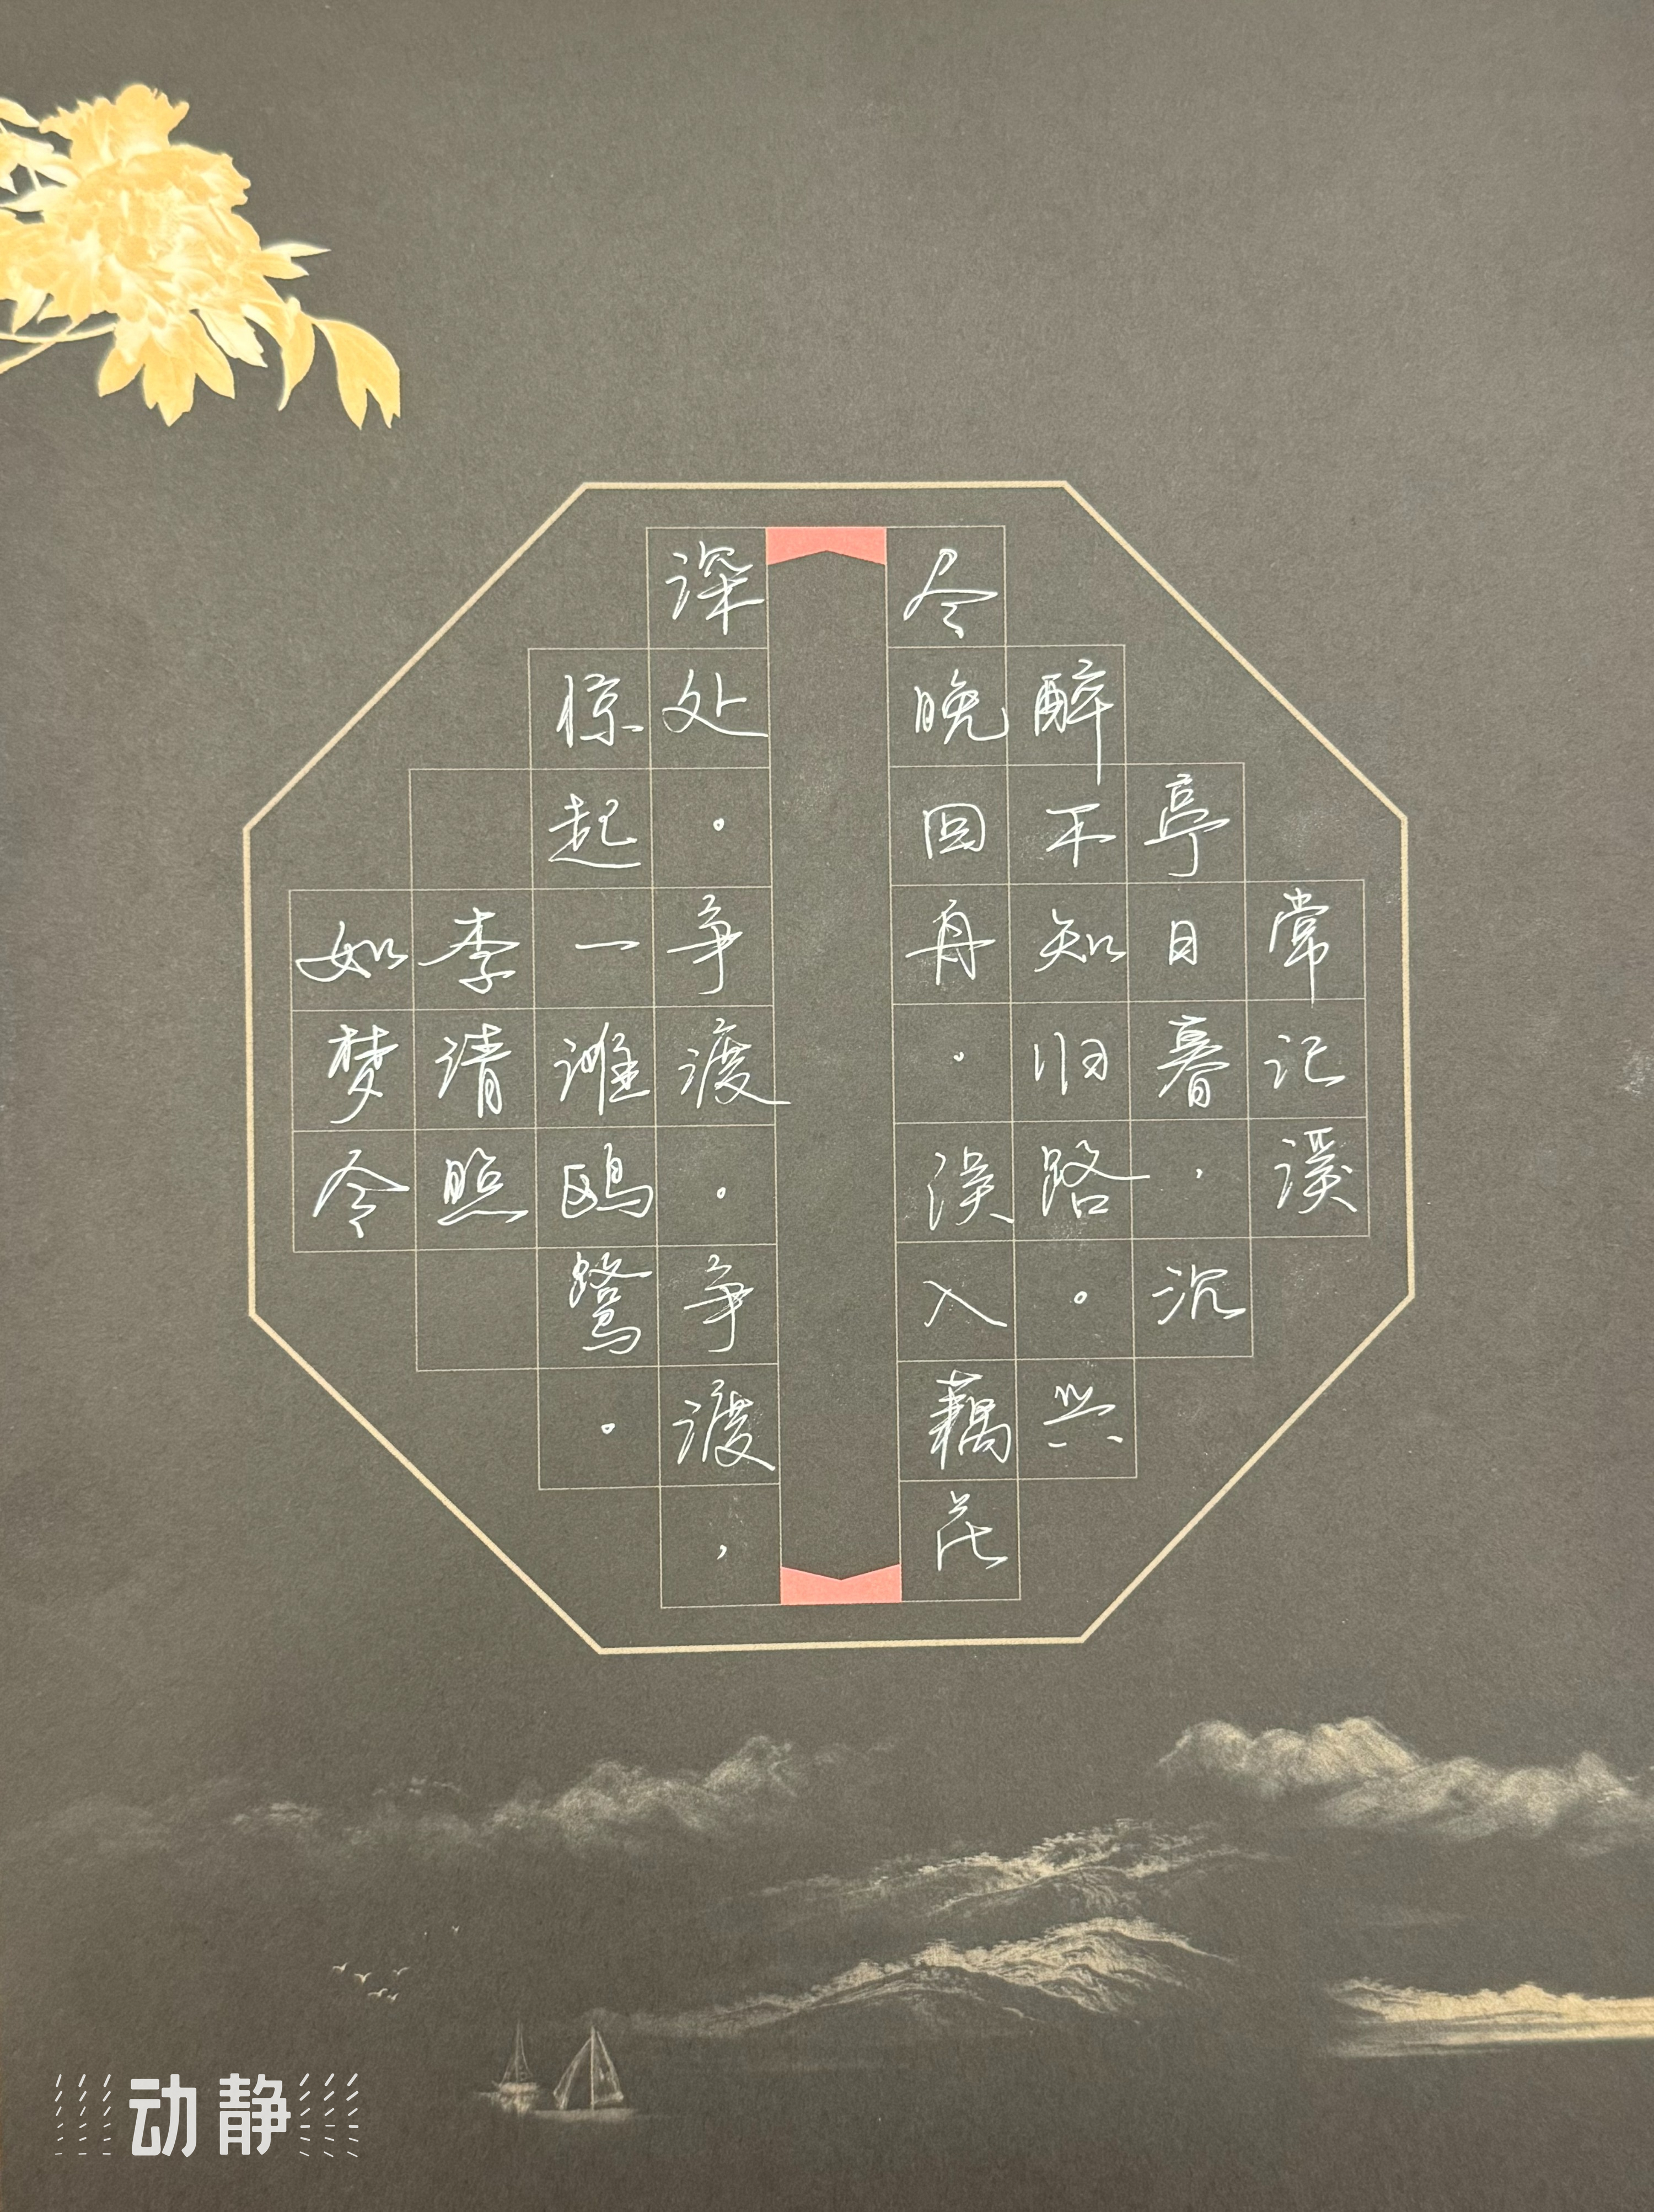 常记溪
亭日暮，沉
醉不知归路。兴
尽晚回舟。误入藕花
深处。争渡。争渡，
惊起一滩鸥鹭。
李清照
如梦令
动静